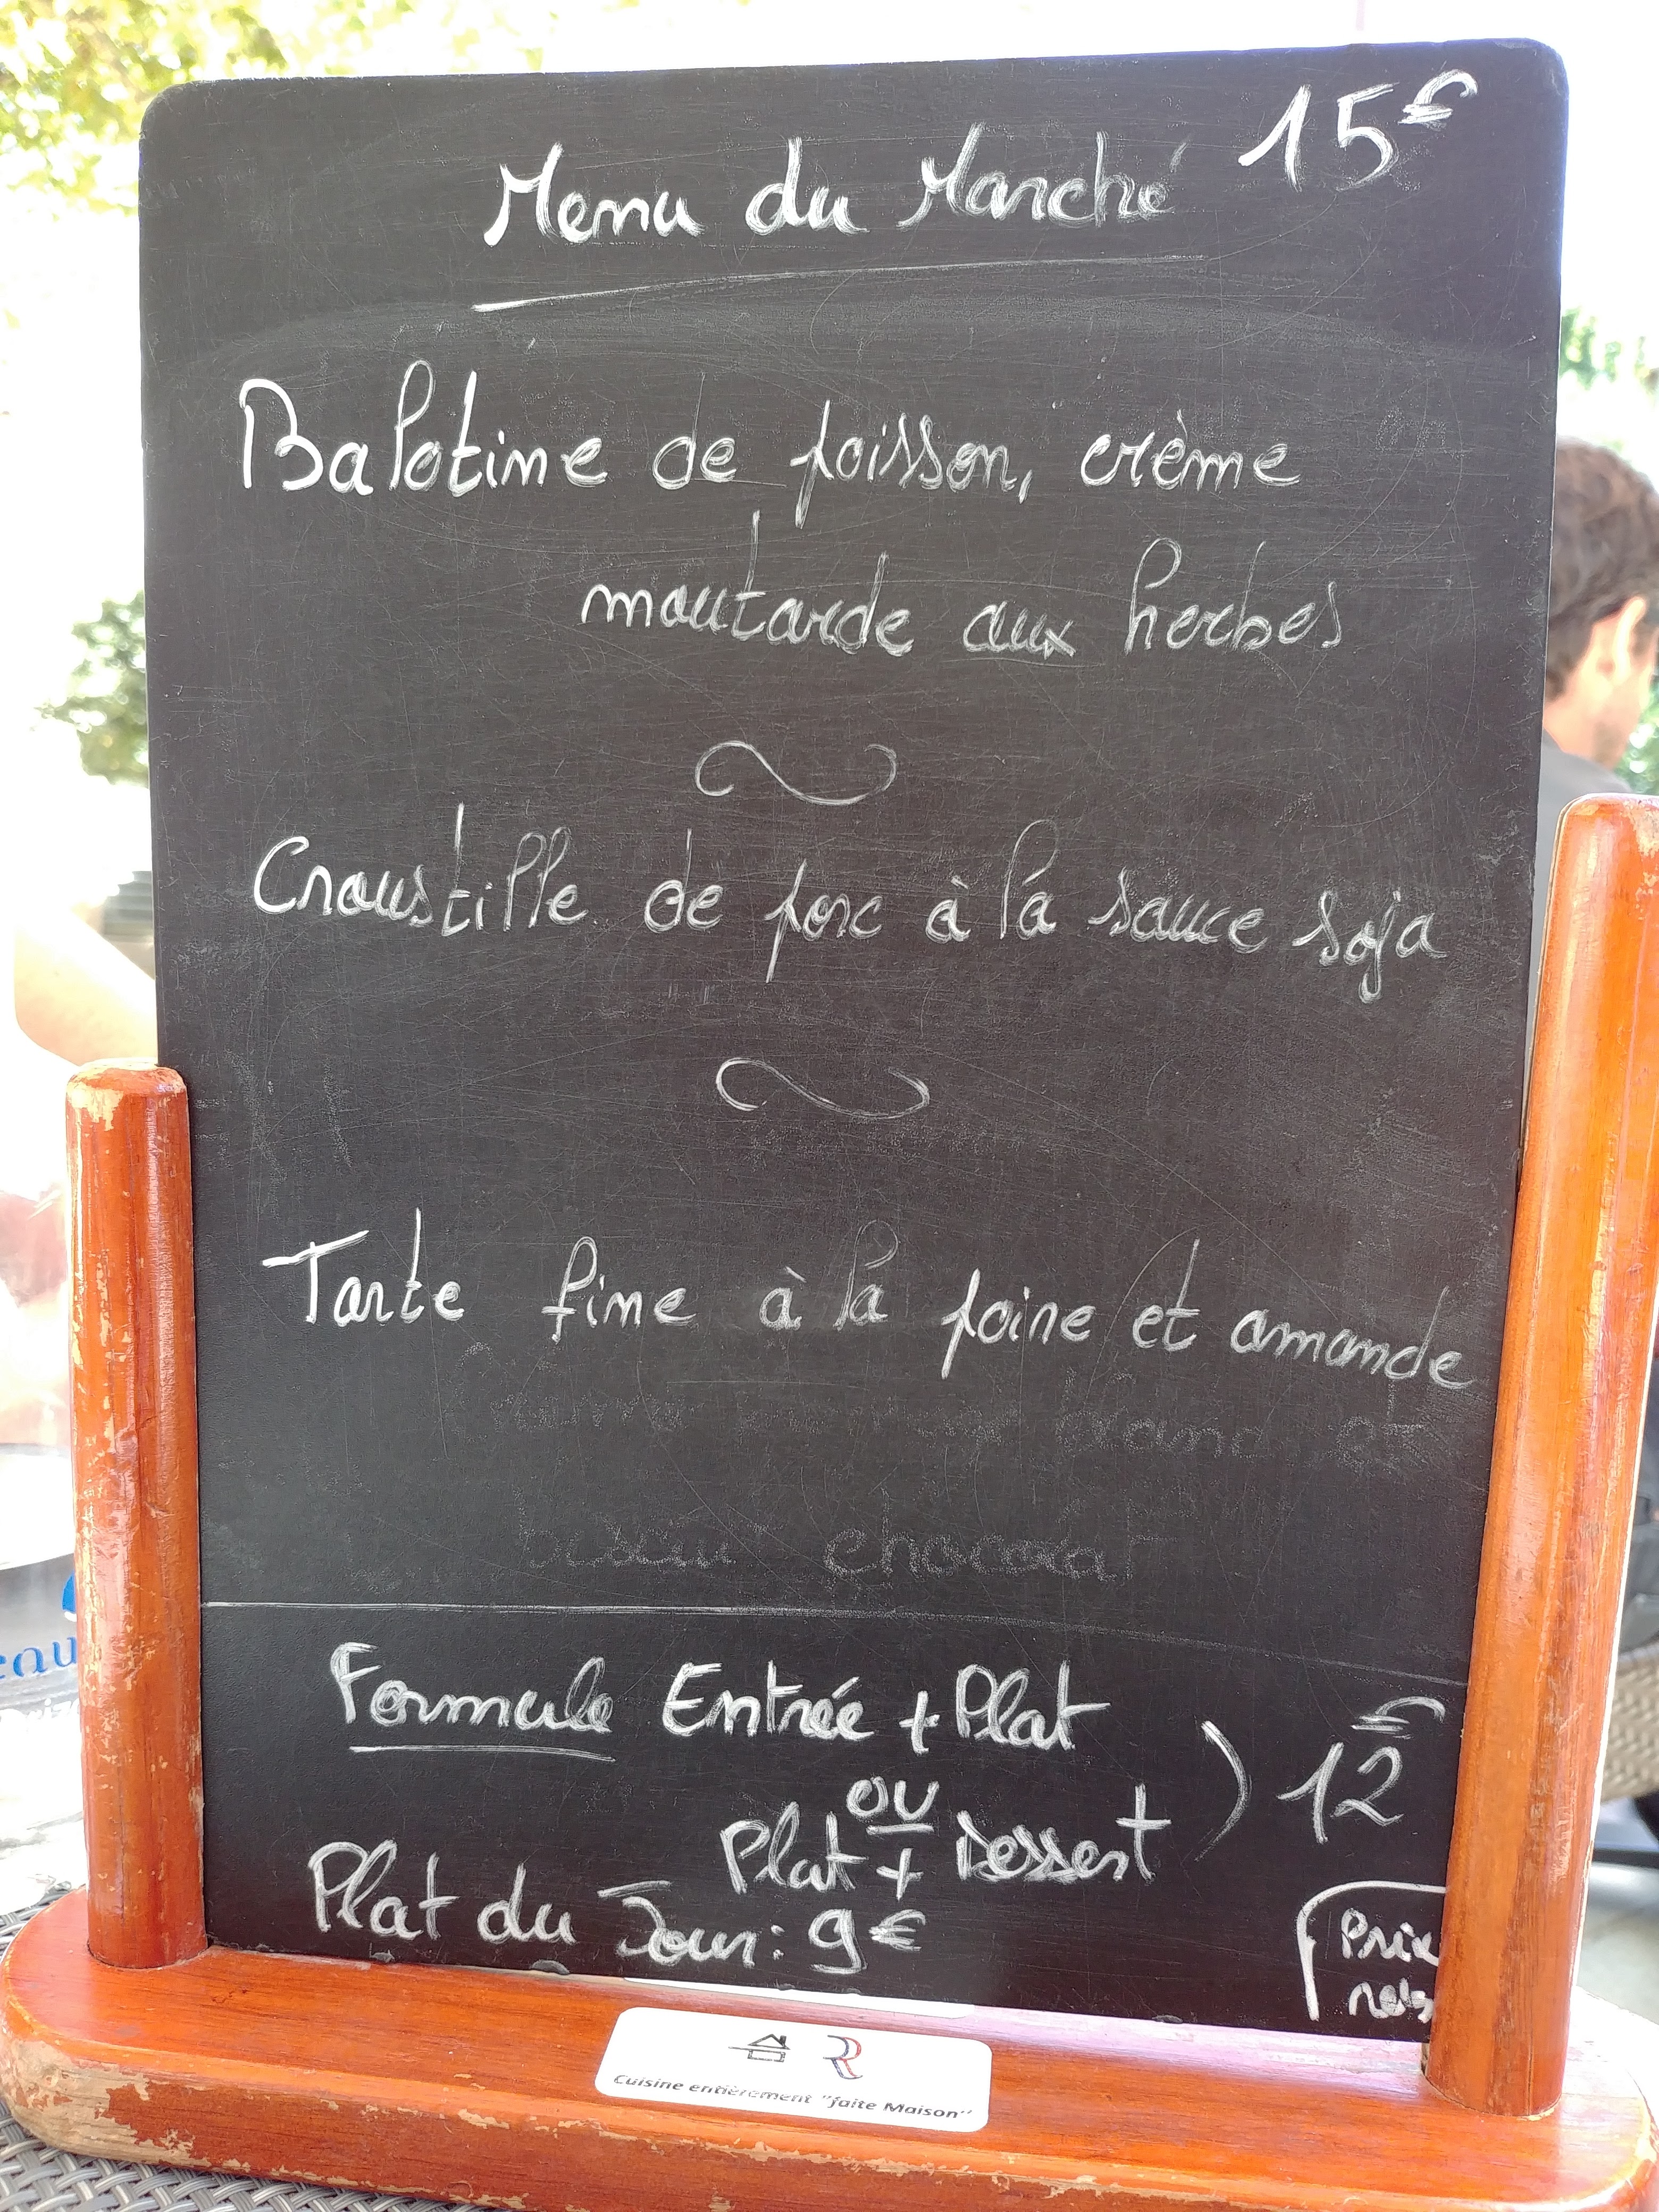 Menu du Marché 15€
Balotine de poisson, crème
moutarde aux herbes
Croustille de porc à la sauce soja
Tarte fine à la poire et amande
blanc et
biscuit chocolat
Formule Entrée + Plat
ou
Plat + Dessert
) 12€
Plat du Jour: 9€
Prix
nets
Cuisine entièrement "faite Maison"
eau